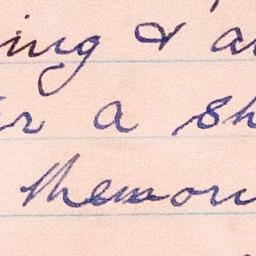 ing & a
r a sh
Memor